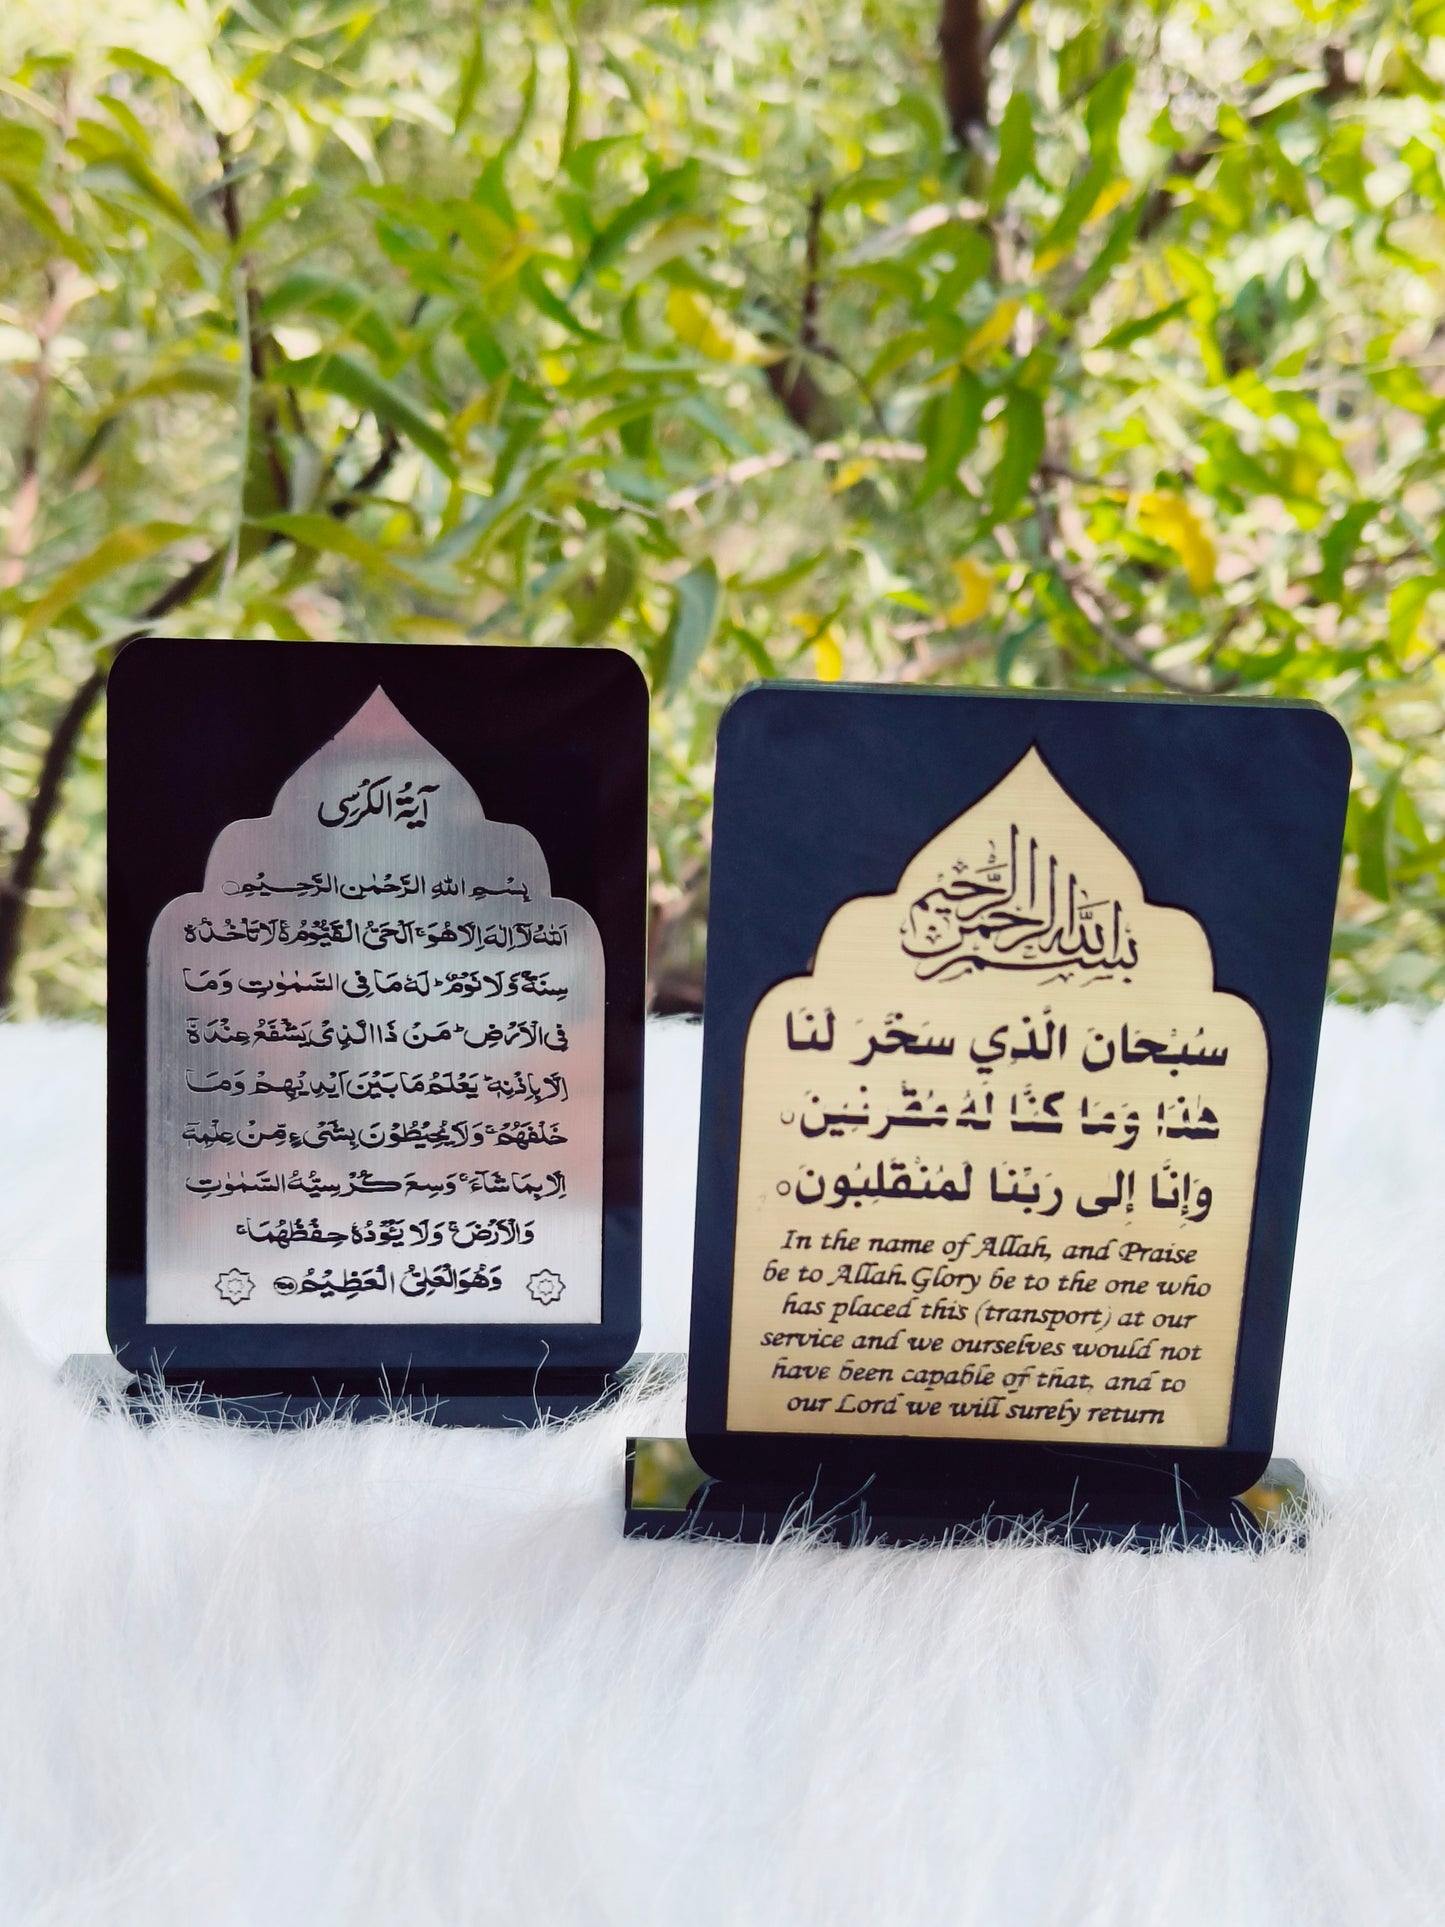 آيَةُ الكُرْسِى
بِسْمِ اللهِ الرَّحْمٰنِ الرَّحِيْمِ
اَللهُ لَآ اِلٰهَ اِلَّا هُوَ ۚ اَلْحَىُّ الْقَيُّوْمُ ۚ لَا تَاْخُذُهٗ
سِنَةٌ وَّلَا نَوْمٌ ؕ لَهٗ مَا فِى السَّمٰوٰتِ وَمَا
فِى الْاَرْضِ ؕ مَنْ ذَا الَّذِىْ يَشْفَعُ عِنْدَهٗٓ
اِلَّا بِاِذْنِهٖ ؕ يَعْلَمُ مَا بَيْنَ اَيْدِيْهِمْ وَمَا
خَلْفَهُمْ ۚ وَلَا يُحِيْطُوْنَ بِشَىْءٍ مِّنْ عِلْمِهٖٓ
اِلَّا بِمَا شَآءَ ۚ وَسِعَ كُرْسِيُّهُ السَّمٰوٰتِ
وَالْاَرْضَ ۚ وَلَا يَـُٔوْدُهٗ حِفْظُهُمَا ۚ
وَهُوَ الْعَلِىُّ الْعَظِيْمُ ۝٢٥٥
بسم الله الرحمن الرحيم
سُبْحَانَ الَّذِي سَخَّرَ لَنَا
هٰذَا وَمَا كُنَّا لَهُ مُقْرِنِينَ ○
وَإِنَّا إِلَى رَبِّنَا لَمُنْقَلِبُونَ ○
In the name of Allah, and Praise
be to Allah. Glory be to the one who
has placed this (transport) at our
service and we ourselves would not
have been capable of that, and to
our Lord we will surely return